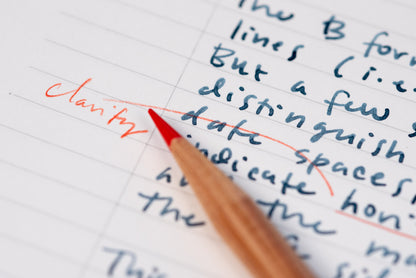 the B for
lines (i.e.
But a few s
distinguish
clarity
date spaces
indicate hori
the the ma
This